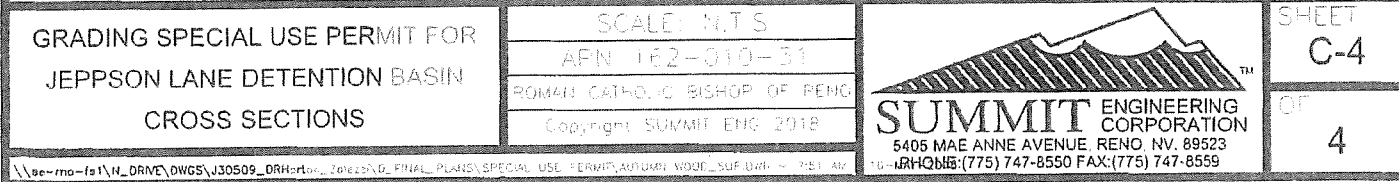 GRADING SPECIAL USE PERMIT FOR
JEPPSON LANE DETENTION BASIN
CROSS SECTIONS
SCALE: N.T.S
APN 162-010-31
ROMAN CATHOLIC BISHOP OF RENO
Copyright SUMMIT ENG 2018
SUMMIT ENGINEERING CORPORATION
TM
5405 MAE ANNE AVENUE, RENO, NV. 89523
PHONE:(775) 747-8550 FAX:(775) 747-8559
SHEET
C-4
OF
4
\DWGS\J30509_DRHorton_ \FINAL_PLANS\SPECIAL USE PERMIT\AUTUMN WOOD_SUP.DWG ~ 7:51 AM